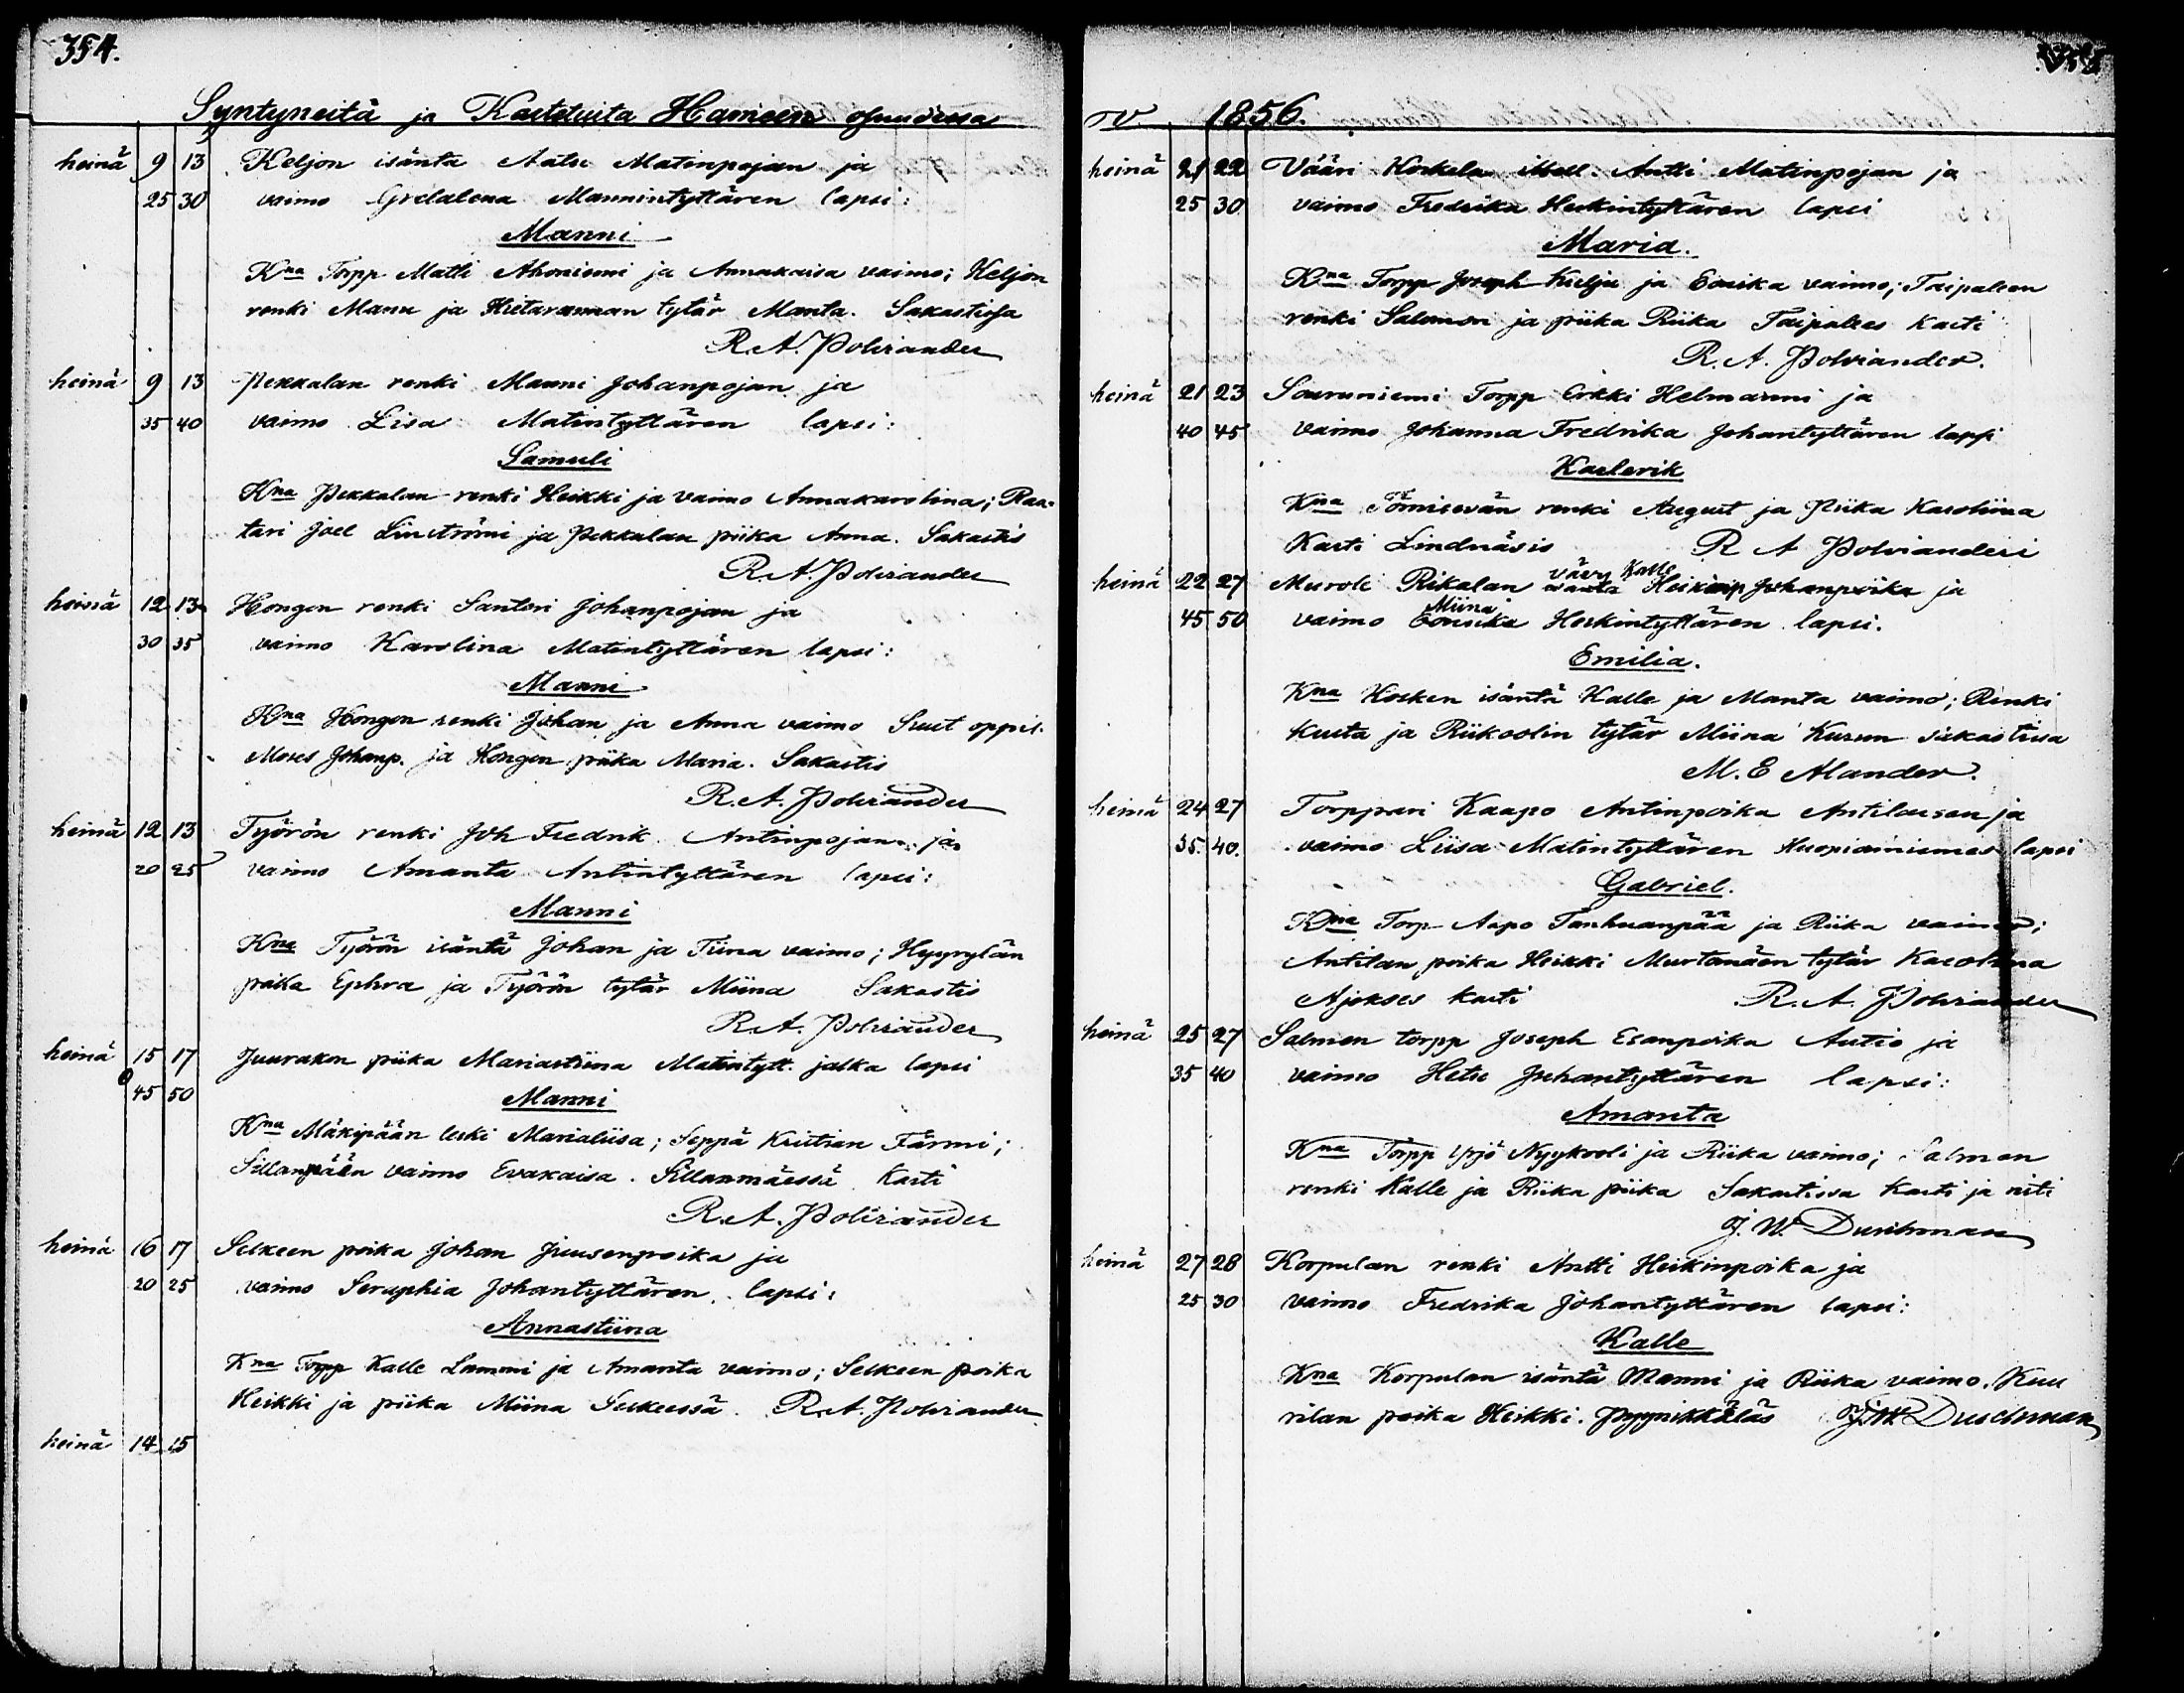 354.
Syntyneitä ja Kastetuita Hämeen osuudessa
heinä 9 13 Keljon isäntä Aatu Matinpojan ja
25 30 vaimo Gretalena Mannintyttären lapsi:
Manni
Kna Torpp Matti Ahoniemi ja Annakaisa vaimo; Keljon
renki Manu ja Hietarannan tytär Manta. Sakastissa
R.A. Polviander
heinä 9 13 Pekkalan renki Manni Johanpojan ja
35 40 vaimo Lisa Matintyttären lapsi:
Samuli
Kna Pekkalan renki Heikki ja vaimo Annakarolina; Raa-
tari Joel Linströmi ja Pekkalan piika Anna. Sakastis
R.A. Polviander
heinä 12 13 Hongon renki Santeri Johanpojan ja
30 35 vaimo Karolina Matintyttären lapsi:
Manni
Kna Hongon renki Johan ja Anna vaimo Suut oppil.
Moses Johanp. ja Hongon piika Maria. Sakastis
R.A. Polviander
heinä 12 13 Työrön renki Joh Fredrik Antinpojan ja
20 25 vaimo Amanta Antintyttären lapsi:
Manni
Kna Työrön isäntä Johan ja Tiina vaimo; Hyyrylän
poika Ephra ja Työrön tytär Miina Sakastis
R.A. Polviander
heinä 15 17 Juurakon piika Mariastiina Matintytt. jalka lapsi
45 50
Manni
Kna Mäkipään leski Marialiisa; Seppä Kristian Färmi;
Sillanpään vaimo Evakaisa. Sillanmäessä Kasti
R.A. Polviander
heinä 16 17 Selkeen poika Johan Juusenpoika ja
20 25 vaimo Seraphia Johantyttären lapsi:
Annastiina
Kna Torpp Kalle Lammi ja Amanta vaimo; Selkeen poika
Heikki ja piika Miina Selkeessä. R.A. Polviander
heinä 14 15
V. 1856.
heinä 21 22 Vääri Koskela Antti Matinpojan ja
25 30 vaimo Fredrika Heikintyttären lapsi
Maria.
Kna Torpp Joseph Kielju ja Eerika vaimo; Taipaleen
renki Salomon ja piika Riika Taipalees Kasti
R.A. Polviander.
heinä 21 23 Souruniemi Torpp Erkki Helmanni ja
40 45 vaimo Johanna Fredrika Johantyttären lapsi
Kaelerik
Kna Törnisevän renki August ja Piika Karoliina
Kasti Lindnäsis R A Polvianderi
heinä 22 27 Murole Rikalan vävy Kalle isäntä Heikinp Johanpoika ja
45 50 vaimo Miina Eerika Heikintyttären lapsi.
Emilia.
Kna Kosken isäntä Kalle ja Manta vaimo; Renki
Kusta ja Riikoolin tytär Miina Kurun sakastissa
M. E Alander.
heinä 24 27 Torppari Kaapo Antinpoika Antilassan ja
35. 40. vaimo Liisa Matintyttären lapsi
Gabriel.
Kna Torp Aapo Tanhuanpää ja Riika vaimo;
Antilan poika Heikki Murtomäen tytär Karolina
Ajokses Kasti R.A. Polviander
heinä 25 27 Salmen torpp Joseph Esanpoika Autio ja
35 40 vaimo Hetu Johantyttären lapsi:
Amanta
Kna Torpp Yrjö Nyykooli ja Riika vaimo; Salmen
renki Kalle ja Riika piika Sakastissa Kasti ja risti
J. W. Duschman
heinä 27 28 Korpulan renki Antti Heikinpoika ja
25 30 vaimo Fredrika Johantyttären lapsi:
Kalle
Kna Korpulan isäntä Manni ja Riika vaimo. Kuu
rilan poika Heikki. Pyynikkäläs J.W. Duschman